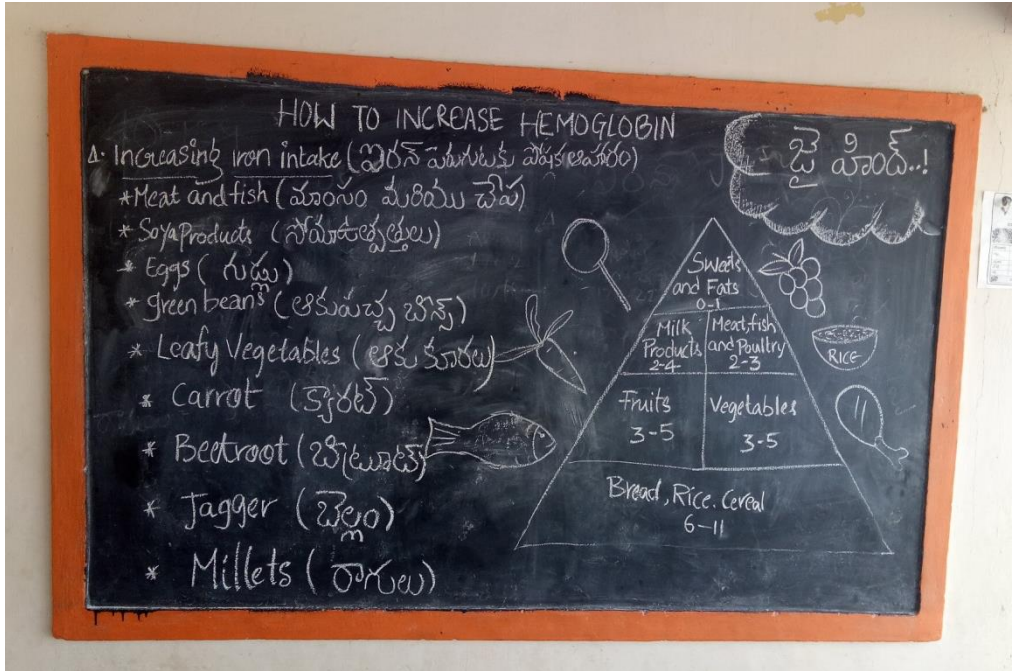 HOW TO INCREASE HEMOGLOBIN
1. Increasing iron intake (ఐరన్ పెరుగుటకు పోషకఆహారం)
*Meat and fish (మాంసం మరియు చేప)
* Soya Products (సోయాఉత్పత్తులు)
* Eggs (గుడ్లు)
* green beans (ఆకుపచ్చ బీన్స్)
* Leafy Vegetables (ఆకు కూరలు)
* Carrot (క్యారట్)
* Beetroot (బీట్రూట్)
* Jagger (బెల్లం)
* Millets (రాగులు)
జై హింద్..!
Sweets
and Fats
0-1
Milk
Products
2-4
Meat, fish
and Poultry
2-3
Fruits
3-5
Vegetables
3-5
Bread, Rice. Cereal
6-11
RICE